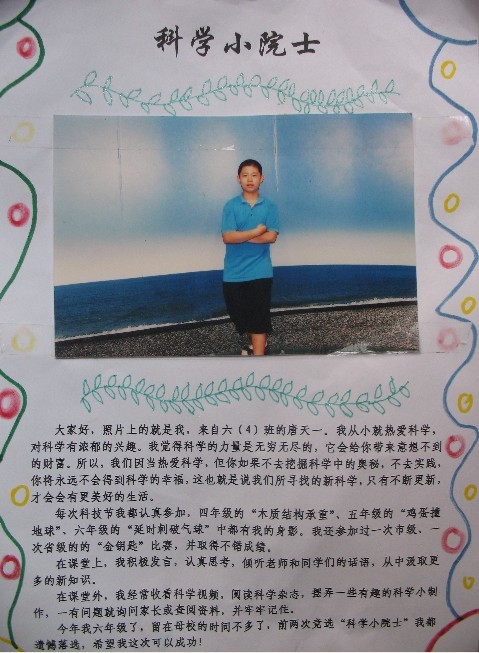 科学小院士
大家好，照片上的就是我，来自六（4）班的唐天一。我从小就热爱科学，
对科学有浓郁的兴趣。我觉得科学的力量是无穷无尽的，它会给你带来意想不到
的财富。所以，我们因当热爱科学，但你如果不去挖掘科学中的奥秘，不去实践，
你将永远不会得到科学的幸福，这也就是说我们所寻找的新科学，只有不断更新，
才会会有更美好的生活。
每次科技节我都认真参加，四年级的“木质结构承重”、五年级的“鸡蛋撞
地球”、六年级的“延时刺破气球”中都有我的身影。我还参加过一次市级、一
次省级的的“金钥匙”比赛，并取得不错成绩。
在课堂上，我积极发言，认真思考，倾听老师和同学们的话语，从中汲取更
多的新知识。
在课堂外，我经常收看科学视频、阅读科学杂志，摆弄一些有趣的科学小制
作，一有问题就询问家长或查阅资料，并牢牢记住。
今年我六年级了，留在母校的时间不多了，前两次竞选“科学小院士”我都
遗憾落选，希望我这次可以成功！